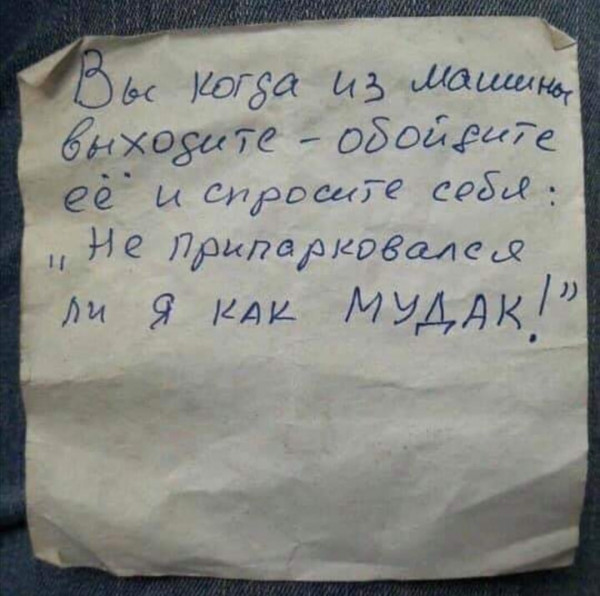 Вы когда из машины
выходите - обойдите
её и спросите себя:
„Не припарковался
ли я как МУДАК!”